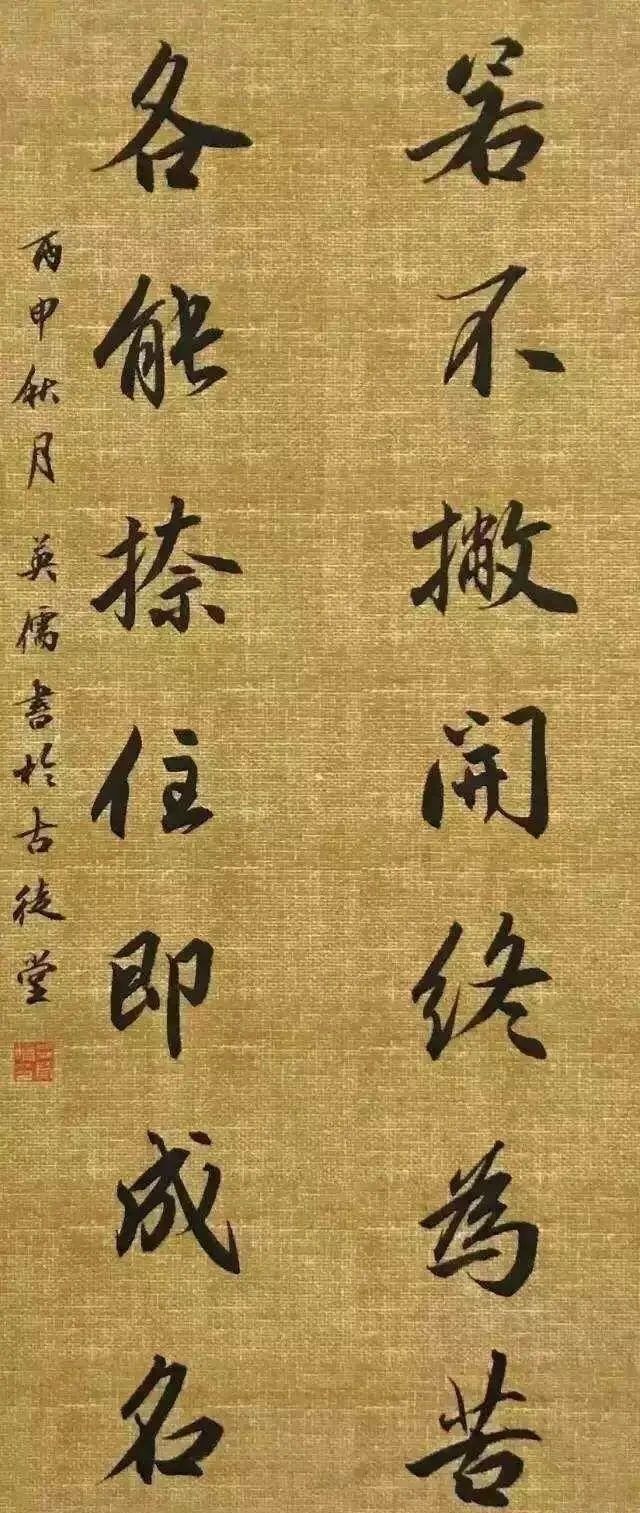 若不撇開終為苦
各能捺住即成名
丙申秋月英儒書於古徒堂